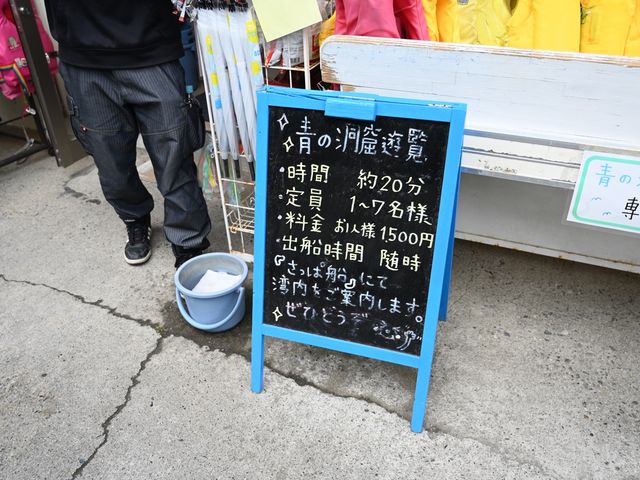 青の洞窟遊覧
・時間 約20分
・定員 1〜7名様
・料金 お1人様1,500円
・出船時間 随時
『さっぱ船』にて
湾内をご案内します。
ぜひどうぞ
青の
専